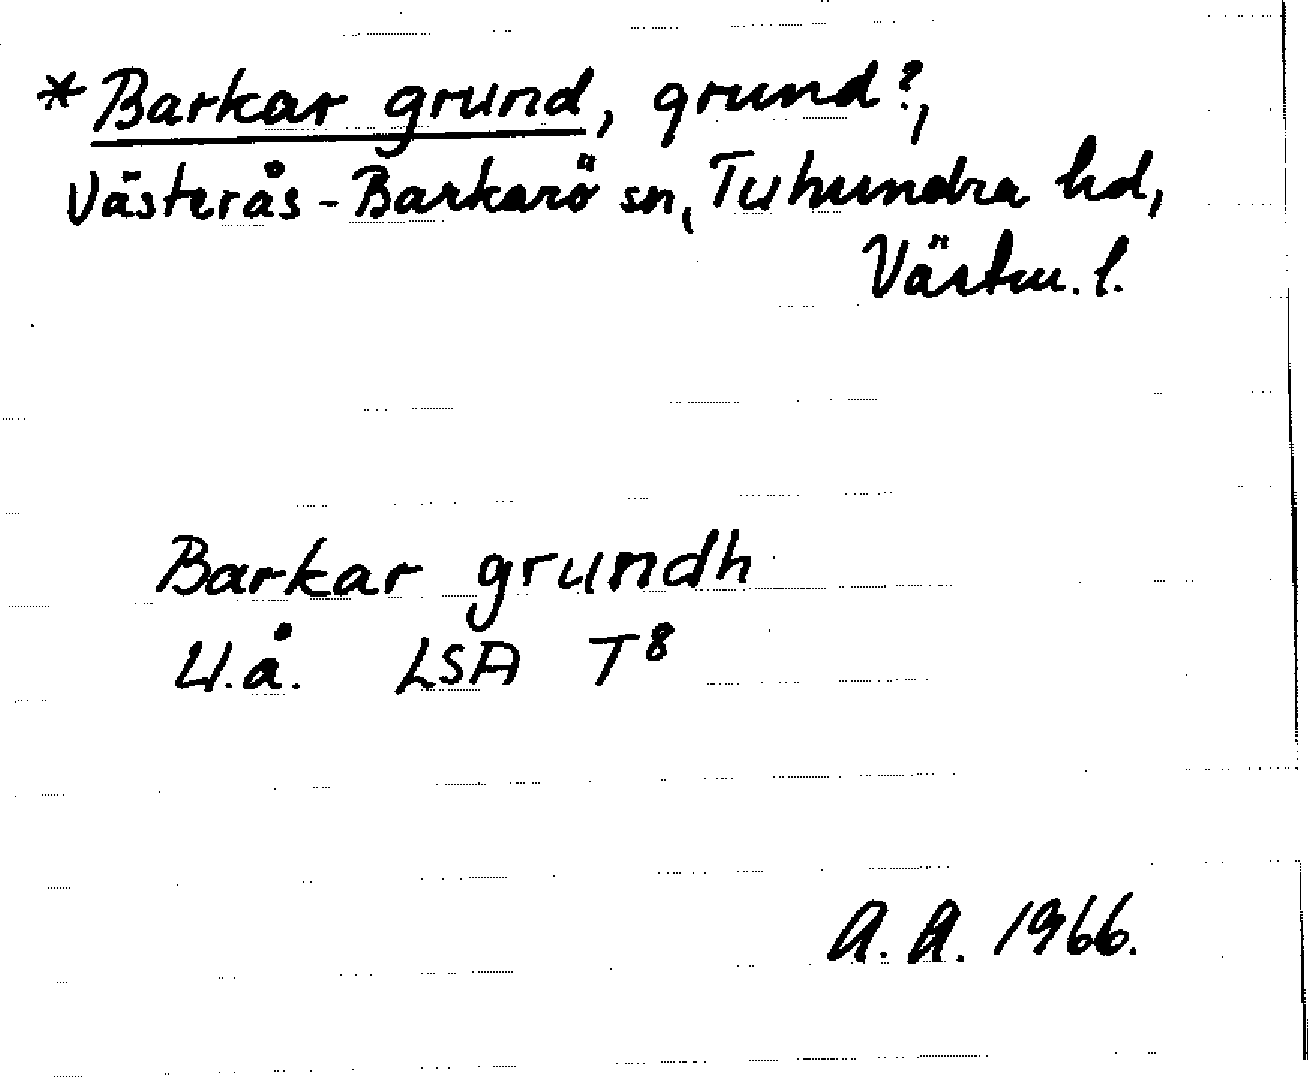 *Barkar grund, grund?,
Västerås-Barkarö sn, Tuhundra hd,
Västm. l.
Barkar grundh
U.å. LSA T8
A.A. 1966.